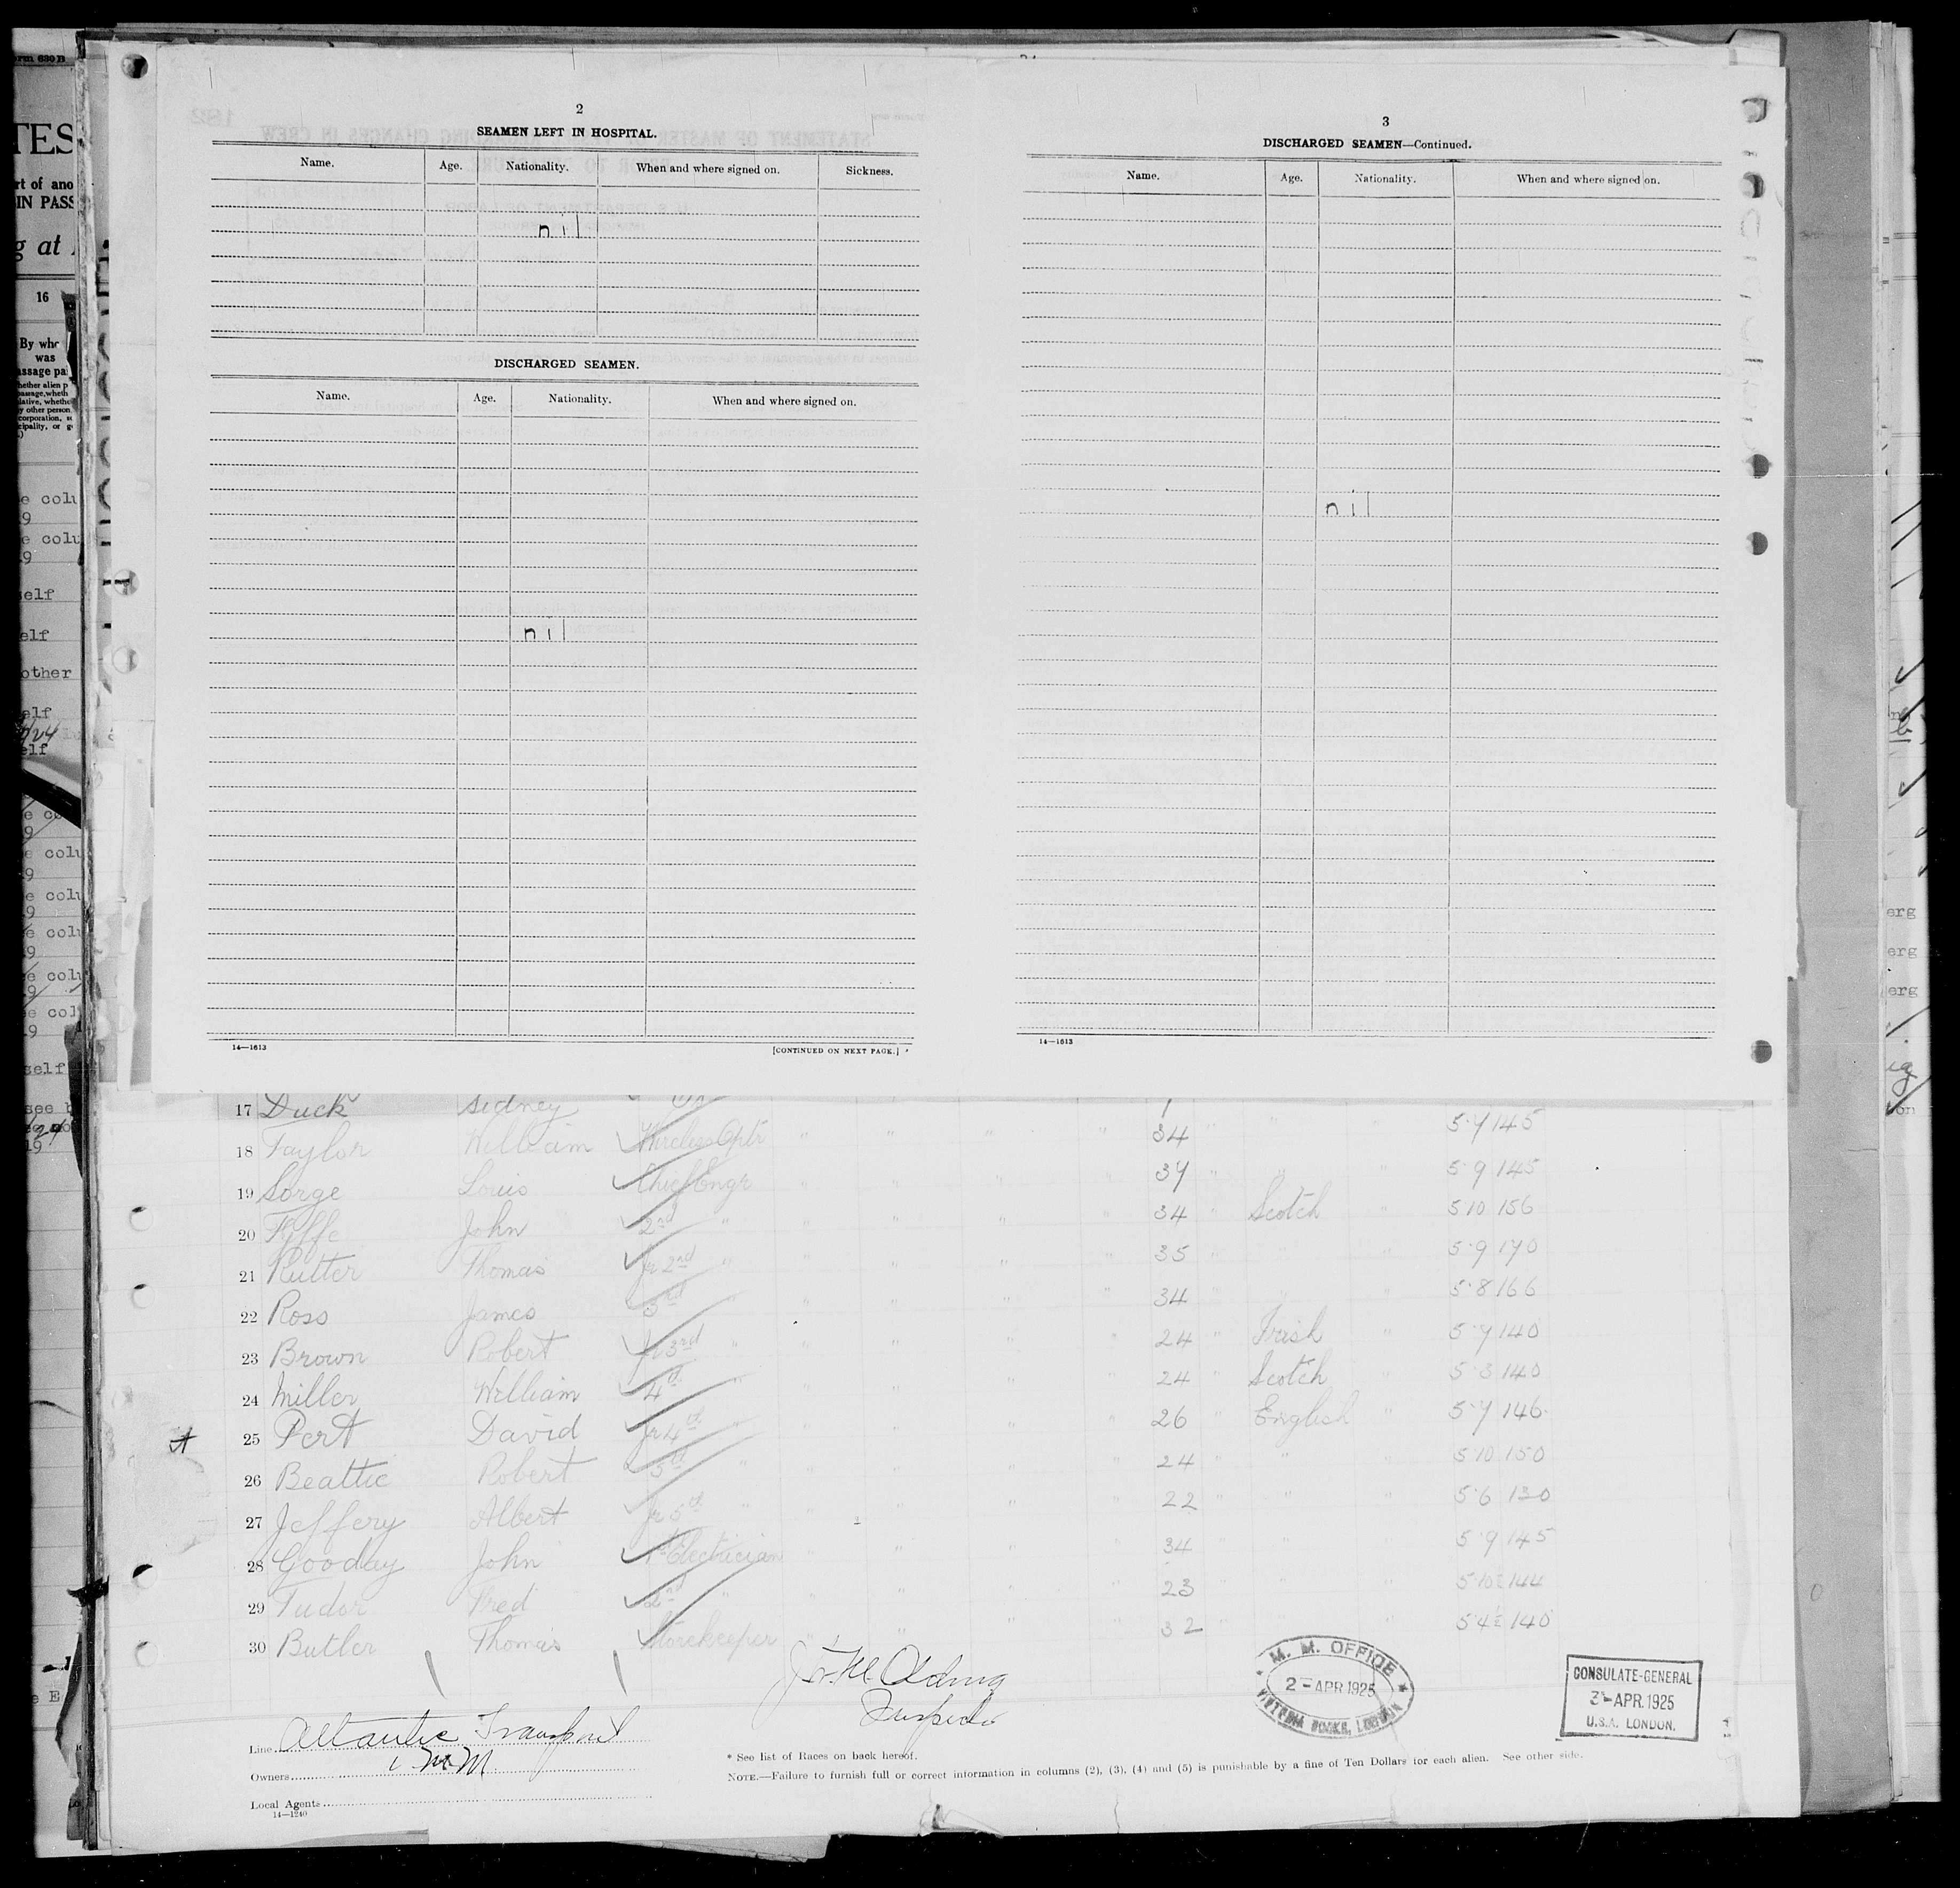 2
SEAMEN LEFT IN HOSPITAL.
Name. Age. Nationality. When and where signed on. Sickness.
nil
DISCHARGED SEAMEN.
Name. Age. Nationality. When and where signed on.
nil
14—1613 [CONTINUED ON NEXT PAGE.]
3
DISCHARGED SEAMEN—Continued.
Name. Age. Nationality. When and where signed on.
nil
14—1613
17 Duck Sidney
18 Taylor William Wireless Optr " " " " 34 " " " 5·7 145
19 Sorge Louis Chief Engr " " " " 37 " " " 5·9 145
20 Fyffe John 2nd " " " " 34 " Scotch " 5 10 156
21 Rutter Thomas Jr 2nd " " " " 35 " " 5·9 170
22 Ross James 3rd " " " " 34 " " 5·8 166
23 Brown Robert Jr 3rd " " " " " 24 " Irish " 5·7 140
24 Miller William 4th " " " " 24 " Scotch " 5·3 140
25 Pert David Jr 4th " " " " 26 " English " 5·7 146
26 Beattie Robert 5th " " " " 24 " " 5 10 150
27 Jeffery Albert Jr 5th " " " " 22 " " " 5·6 130
28 Gooday John 1st Electrician " " " 34 " " 5·9 145
29 Tudor Fred 2nd " " " " 23 " " 5·10½ 144
30 Butler Thomas Storekeeper " " " " 32 " " 5 4½ 140
M. M. OFFICE
2 - APR. 1925
VICTORIA DOCKS, LONDON
CONSULATE-GENERAL
3 - APR. 1925
U.S.A. LONDON.
Line Atlantic Transport
Owners I M M
Local Agents
14—1240
* See list of Races on back hereof.
NOTE.—Failure to furnish full or correct information in columns (2), (3), (4) and (5) is punishable by a fine of Ten Dollars for each alien. See other side.